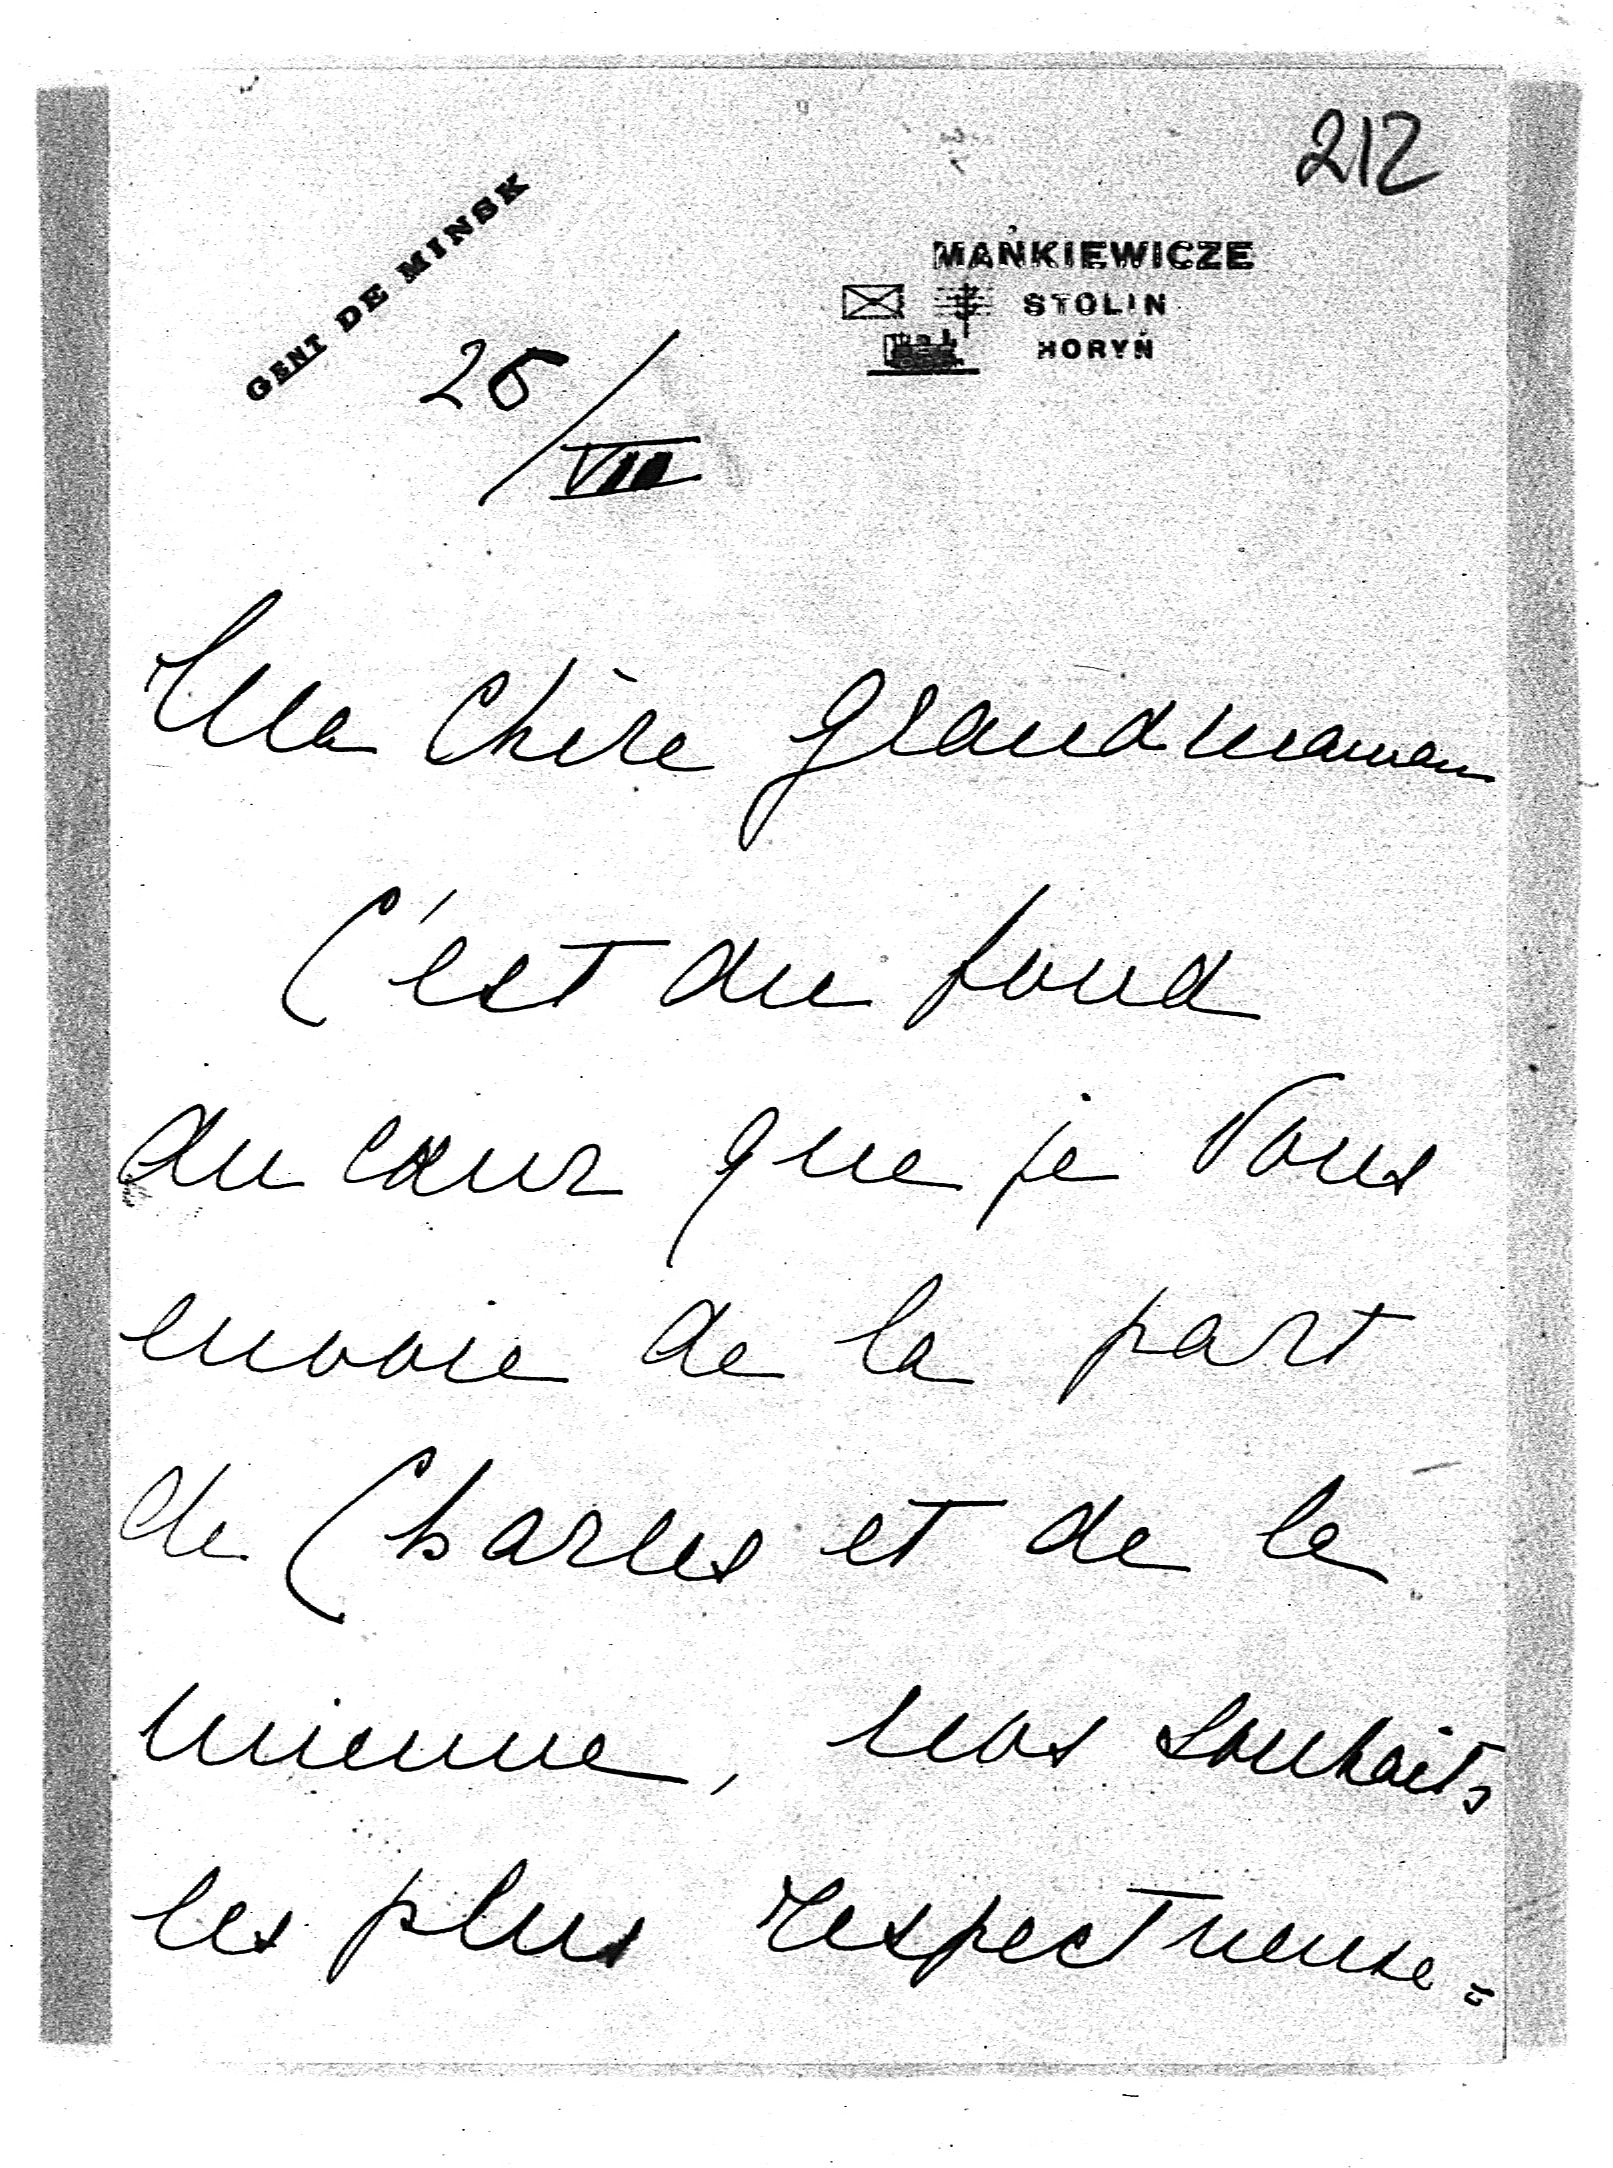 212
GENT DE MINSK
MAŃKIEWICZE
STOLIN
HORYŃ
26/VIII
Ma chère grandmaman
C'est du fond
du cœur que je Vous
envoie de la part
de Charles et de la
mienne, nos souhaits
les plus respectueuse=